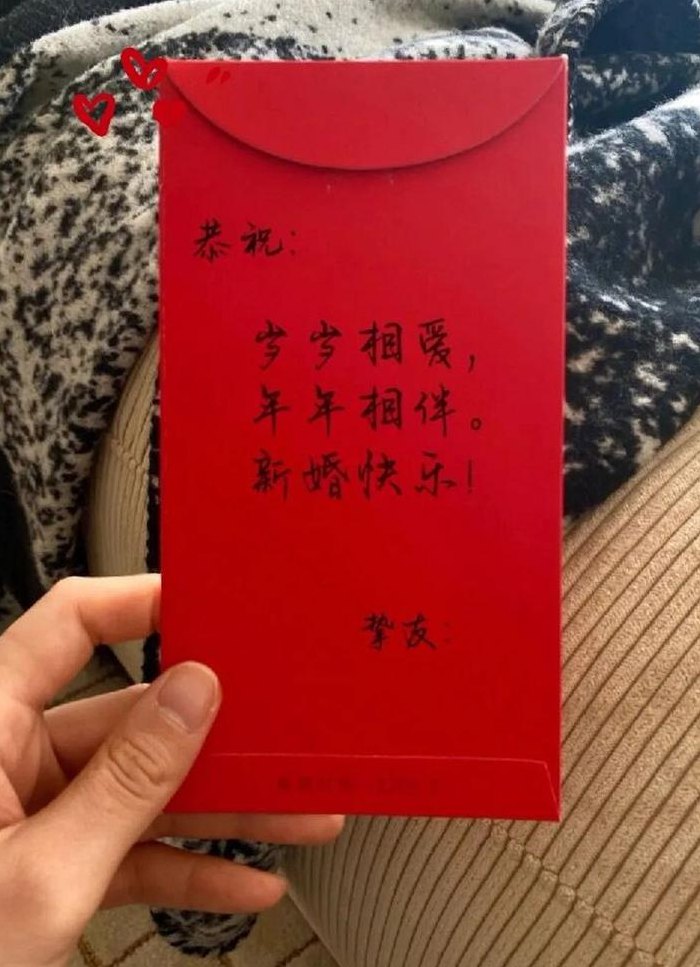 恭祝:
岁岁相爱,
年年相伴。
新婚快乐!
挚友: